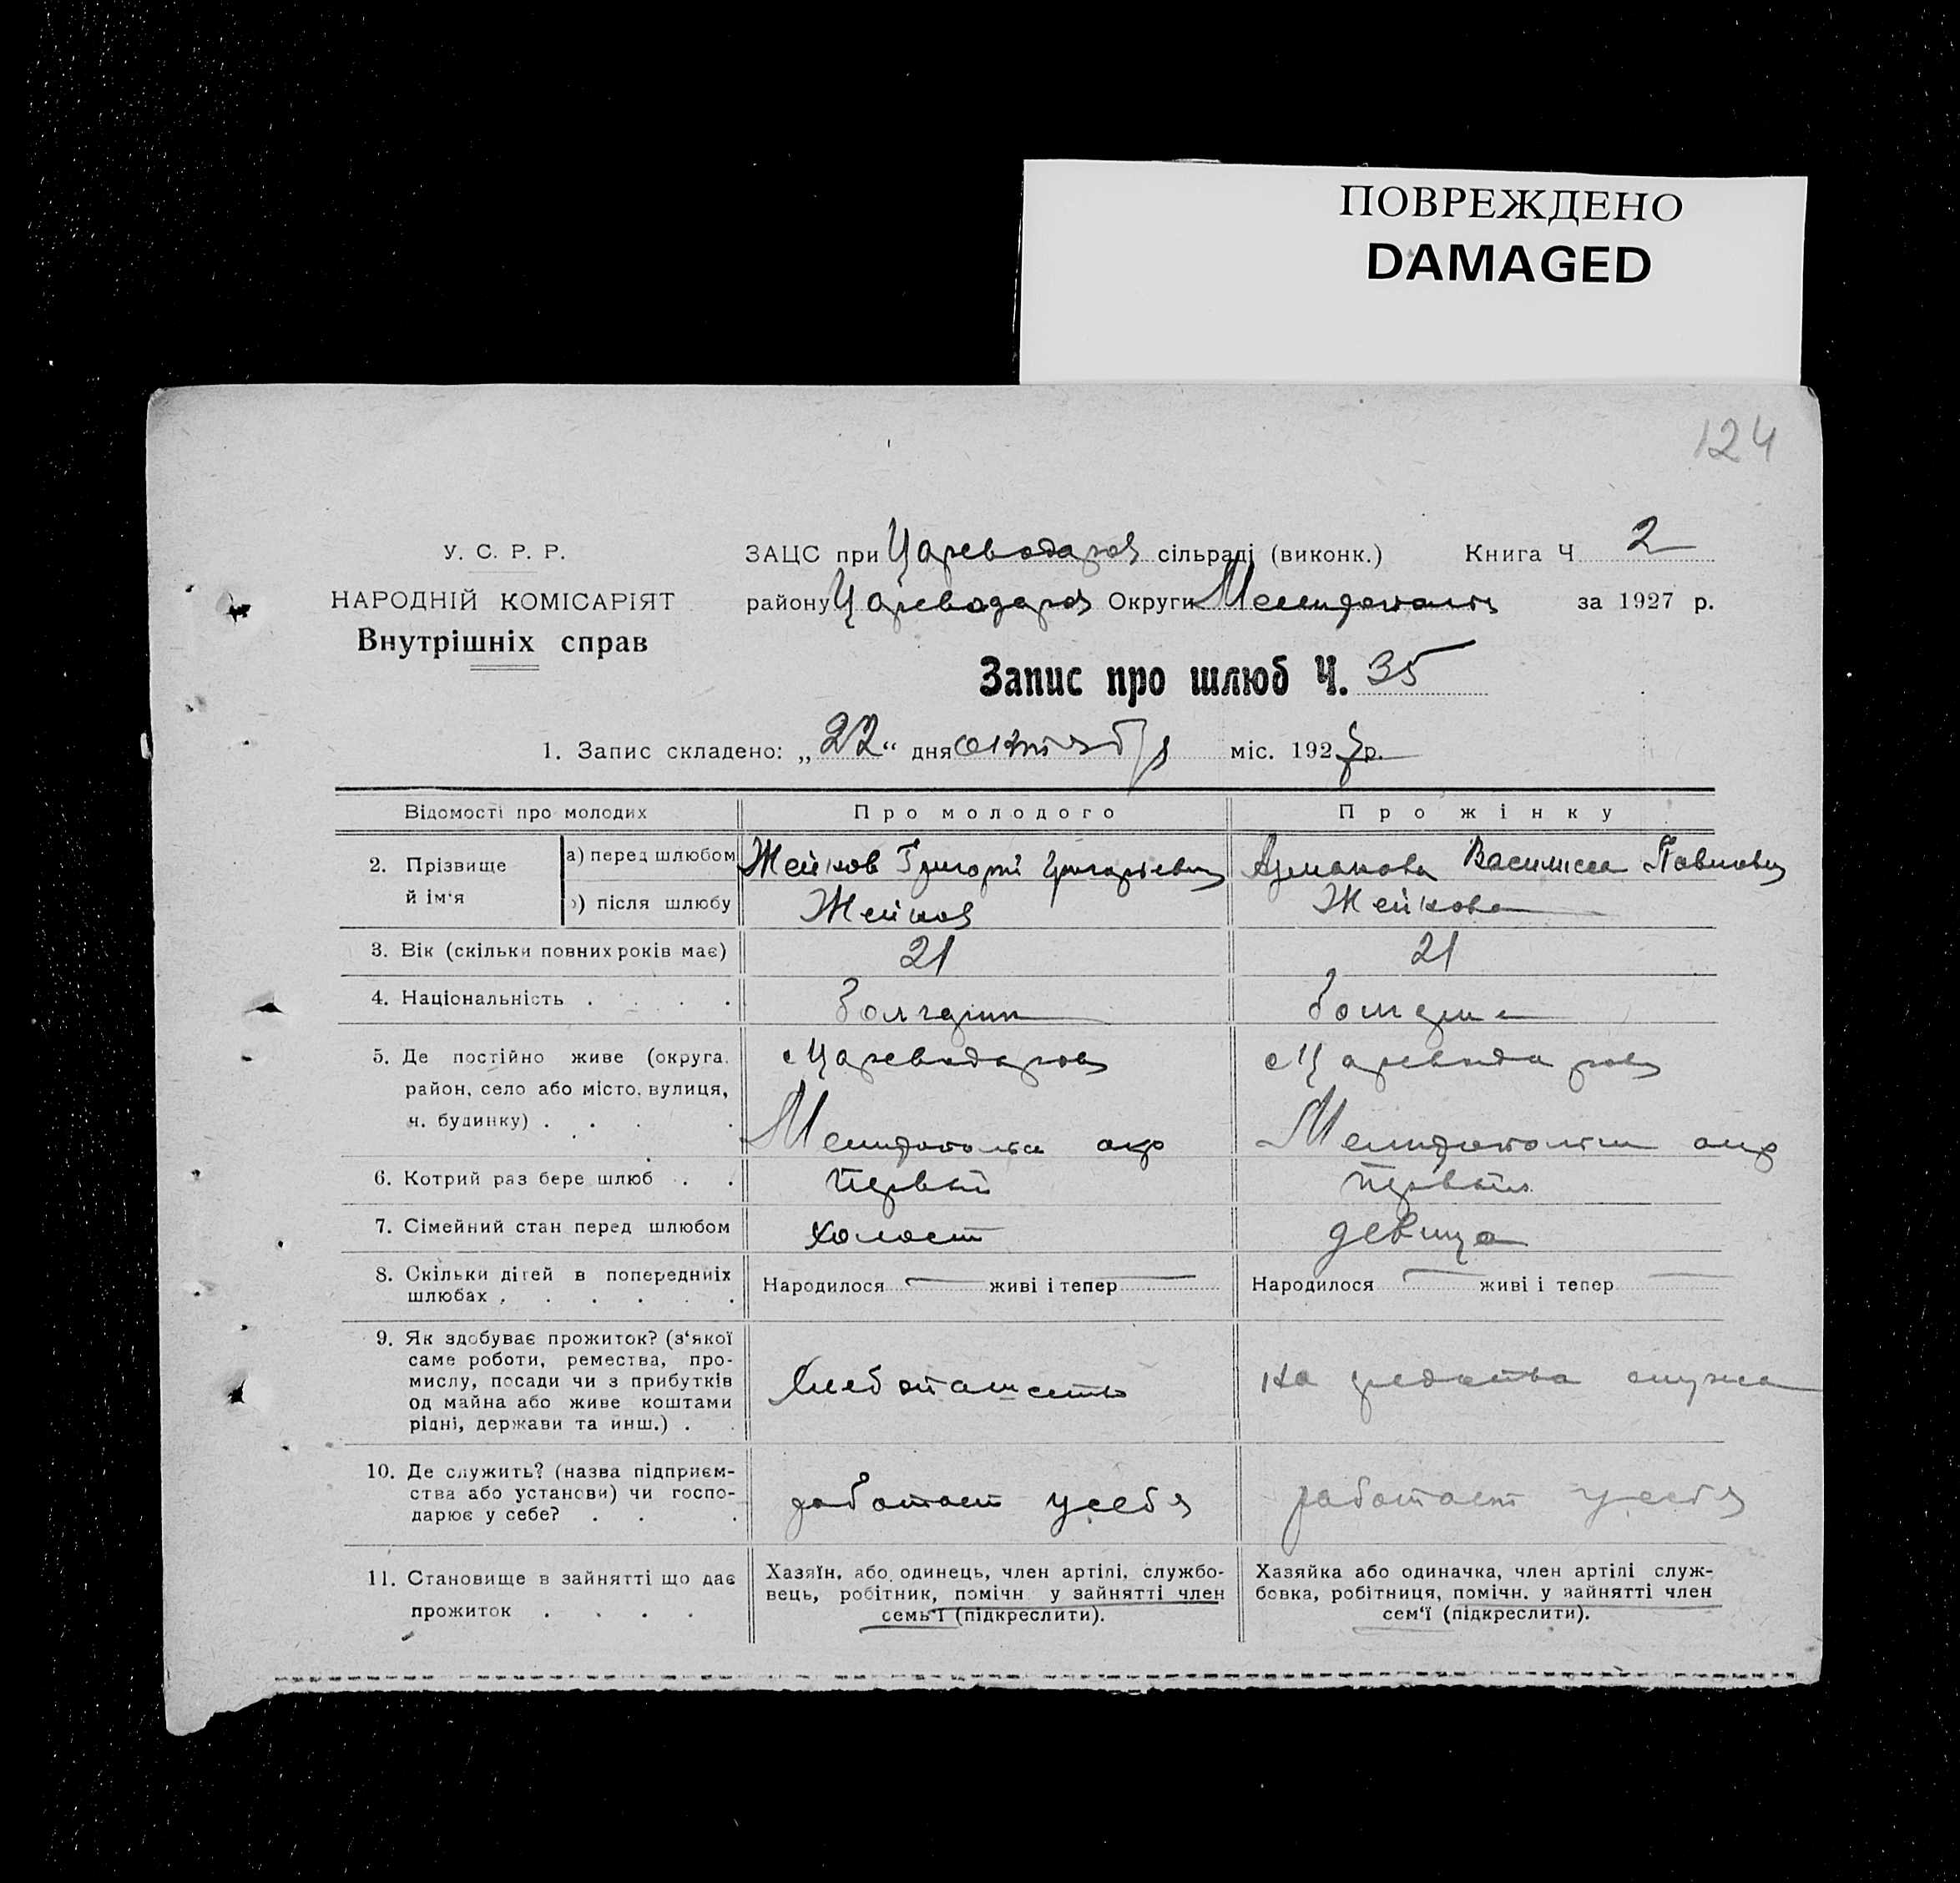 ПОВРЕЖДЕНО
DAMAGED
124
У. С. Р. Р.
НАРОДНІЙ КОМІСАРІЯТ
Внутрішніх справ
ЗАЦС при Цареводаров сільраді (виконк.) Книга Ч 2
району Цареводаров Округи Мелитопольск за 1927 р.
Запис про шлюб Ч. 35
1. Запис складено: „22“ дня октября міс. 1927 р.
Відомості про молодих
Про молодого
Про жінку
2. Прізвище й ім‘я
а) перед шлюбом
Жейков Григорий Григорьевич
Василиса Павловн
б) після шлюбу
Жейков
Жейкова
3. Вік (скільки повних років має)
21
21
4. Національність . . . .
болгарин
болгарка
5. Де постійно живе (округа,
район, село або місто, вулиця,
ч. будинку) . . . .
с Цареводаров
Мелитопольск окр
с Цареводаров
Мелитопольск окр
6. Котрий раз бере шлюб . .
первый
первый
7. Сімейний стан перед шлюбом
холост
девица
8. Скільки дітей в попередниіх
шлюбах . . . . . .
Народилося — живі і тепер —
Народилося — живі і тепер —
9. Як здобуває прожиток? (з‘якої
саме роботи, ремества, про-
мислу, посади чи з прибутків
од майна або живе коштами
рідні, держави та инш.) . .
хлебопашество
на средства
10. Де служить? (назва підприєм-
ства або установи) чи госпо-
дарює у себе? . . .
работает у себя
работает у себя
11. Становище в зайнятті що дає
прожиток . . . .
Хазяїн, або одинець, член артілі, службо-
вець, робітник, помічн у зайнятті член
семь‘ї (підкреслити).
Хазяйка або одиначка, член артілі служ-
бовка, робітниця, помічн. у зайнятті член
сем‘ї (підкреслити).